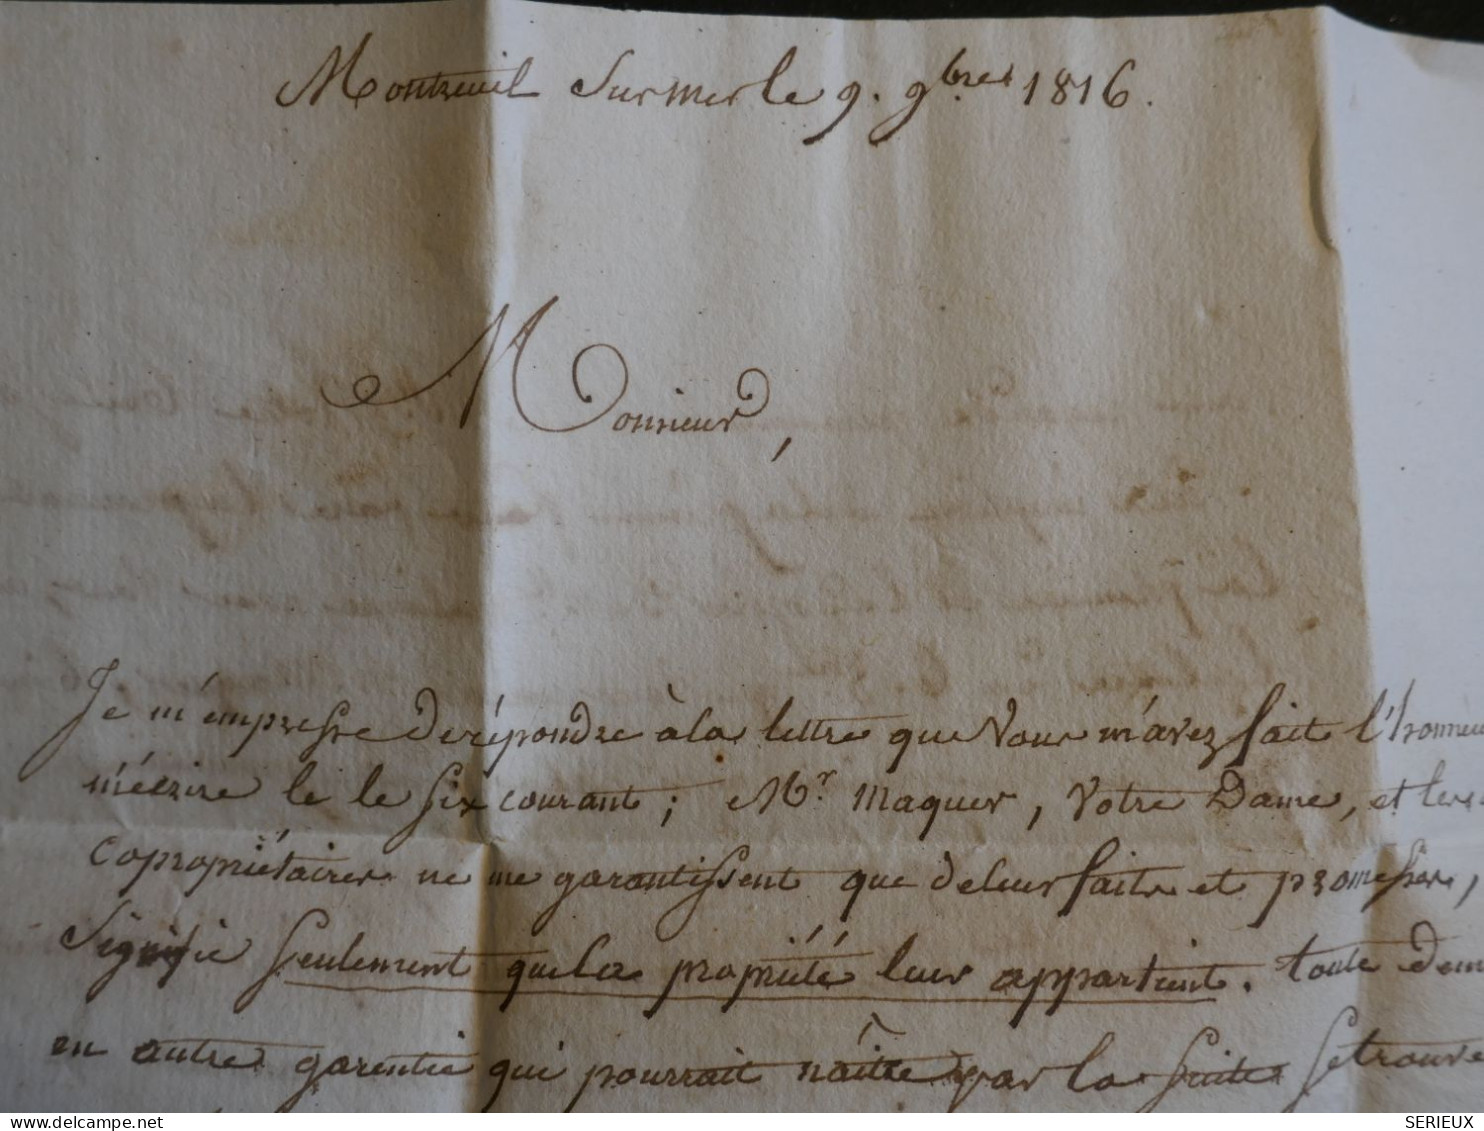 Montreuil Sur mer le 9. 9bre 1816.
Monsieur,
Je m'empresse de répondre à la lettre que vous m'avez fait l'honneur
m'écrire le le six courant; Mr. Maquer, votre Dame, et leurs
copropriétaires ne me garantissent que de leurs faits et promesses,
Signifie seulement que la propriété leur appartient. toute dem
en autre garentie qui pourrait naître par la suite se trouve
delcampe.net
SERIEUX